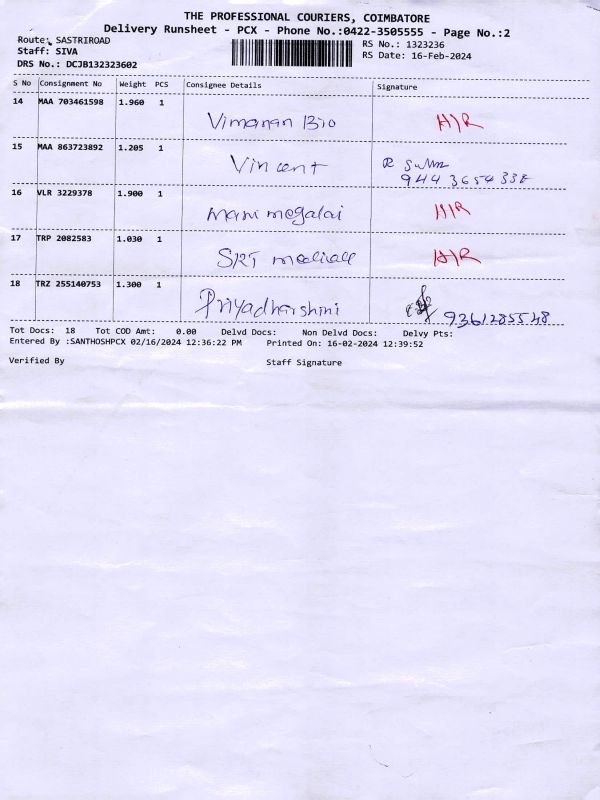 THE PROFESSIONAL COURIERS, COIMBATORE
Delivery Runsheet - PCX - Phone No.:0422-3505555 - Page No.:2
Route: SASTRIROAD
Staff: SIVA
DRS No.: DCJB132323602
RS No.: 1323236
RS Date: 16-Feb-2024
S No Consignment No Weight PCS Consignee Details Signature
14 MAA 703461598 1.960 1 Vimanan Bio H/R
15 MAA 863723892 1.205 1 Vincent
16 VLR 3229378 1.900 1 Manimegalai H/R
17 TRP 2082583 1.030 1 SRT medicall H/R
18 TRZ 255140753 1.300 1 Priyadharshini 9361285548
Tot Docs: 18 Tot COD Amt: 0.00 Delvd Docs: Non Delvd Docs: Delvy Pts:
Entered By :SANTHOSHPCX 02/16/2024 12:36:22 PM Printed On: 16-02-2024 12:39:52
Verified By Staff Signature